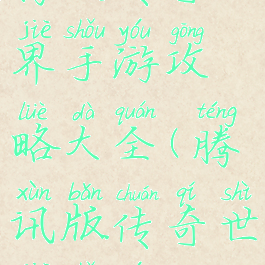 jiè shǒu yóu gōng
界手游攻
lüè dà quán téng
略大全(腾
xùn bǎn chuán qí shì
讯版传奇世